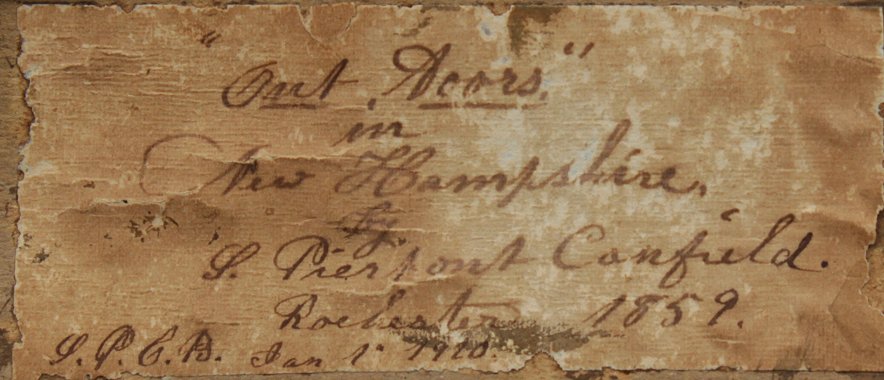 "Out Doors."
in
New Hampshire,
by
S. Pierpont Canfield.
Rochester 1859.
S. P. C. D. Jan 1" 1920.